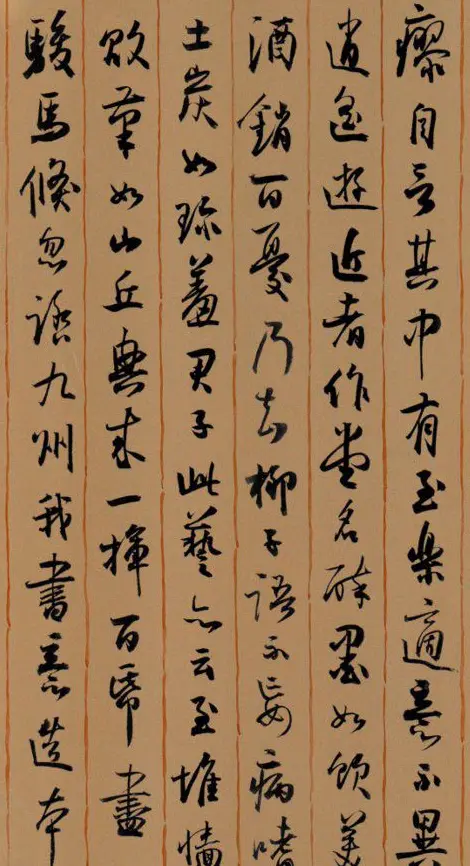 瘳自言其中有至樂適意不異
逍遙遊近者作堂名醉墨如飲美
酒銷百憂乃知柳子語不妄病嗜
土炭如珍羞君于此藝亦云至堆墻
敗筆如山丘興來一揮百帋盡
駿馬倏忽踏九州我書意造本